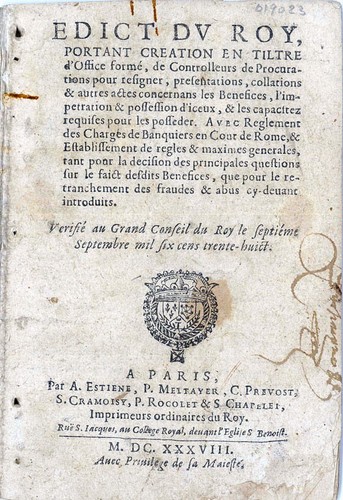 019023
EDICT DV ROY,
PORTANT CREATION EN TILTRE
d'Office formé, de Controlleurs de Procura-
tions pour resigner, presentations, collations
& autres actes concernans les Benefices, l'im-
petration & possession d'iceux, & les capacitez
requises pour les posseder. AVEC Reglement
des Charges de Banquiers en Cour de Rome, &
Establissement de regles & maximes generales,
tant pour la decision des principales questions
sur le faict desdits Benefices, que pour le re-
tranchement des fraudes & abus cy-deuant
introduits.
Verifié au Grand Conseil du Roy le septiéme
Septembre mil six cens trente-huict.
A PARIS,
Par A. ESTIENE, P. METTAYER, C. PREVOST,
S. CRAMOISY, P. ROCOLET & S CHAPELET,
Imprimeurs ordinaires du Roy.
Ruë S. Iacques, au College Royal, deuant l'Eglise S Benoist.
M. DC. XXXVIII.
Auec Priuilege de sa Maiesté.